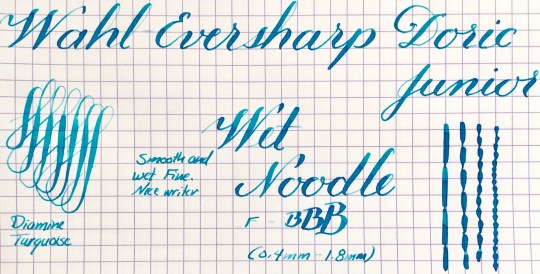 Wahl-Eversharp Doric
Junior
Wet
Noodle
Smooth and
wet Fine.
Nice writer
F - BBB
(0.4mm - 1.8mm)
Diamine
Turquoise